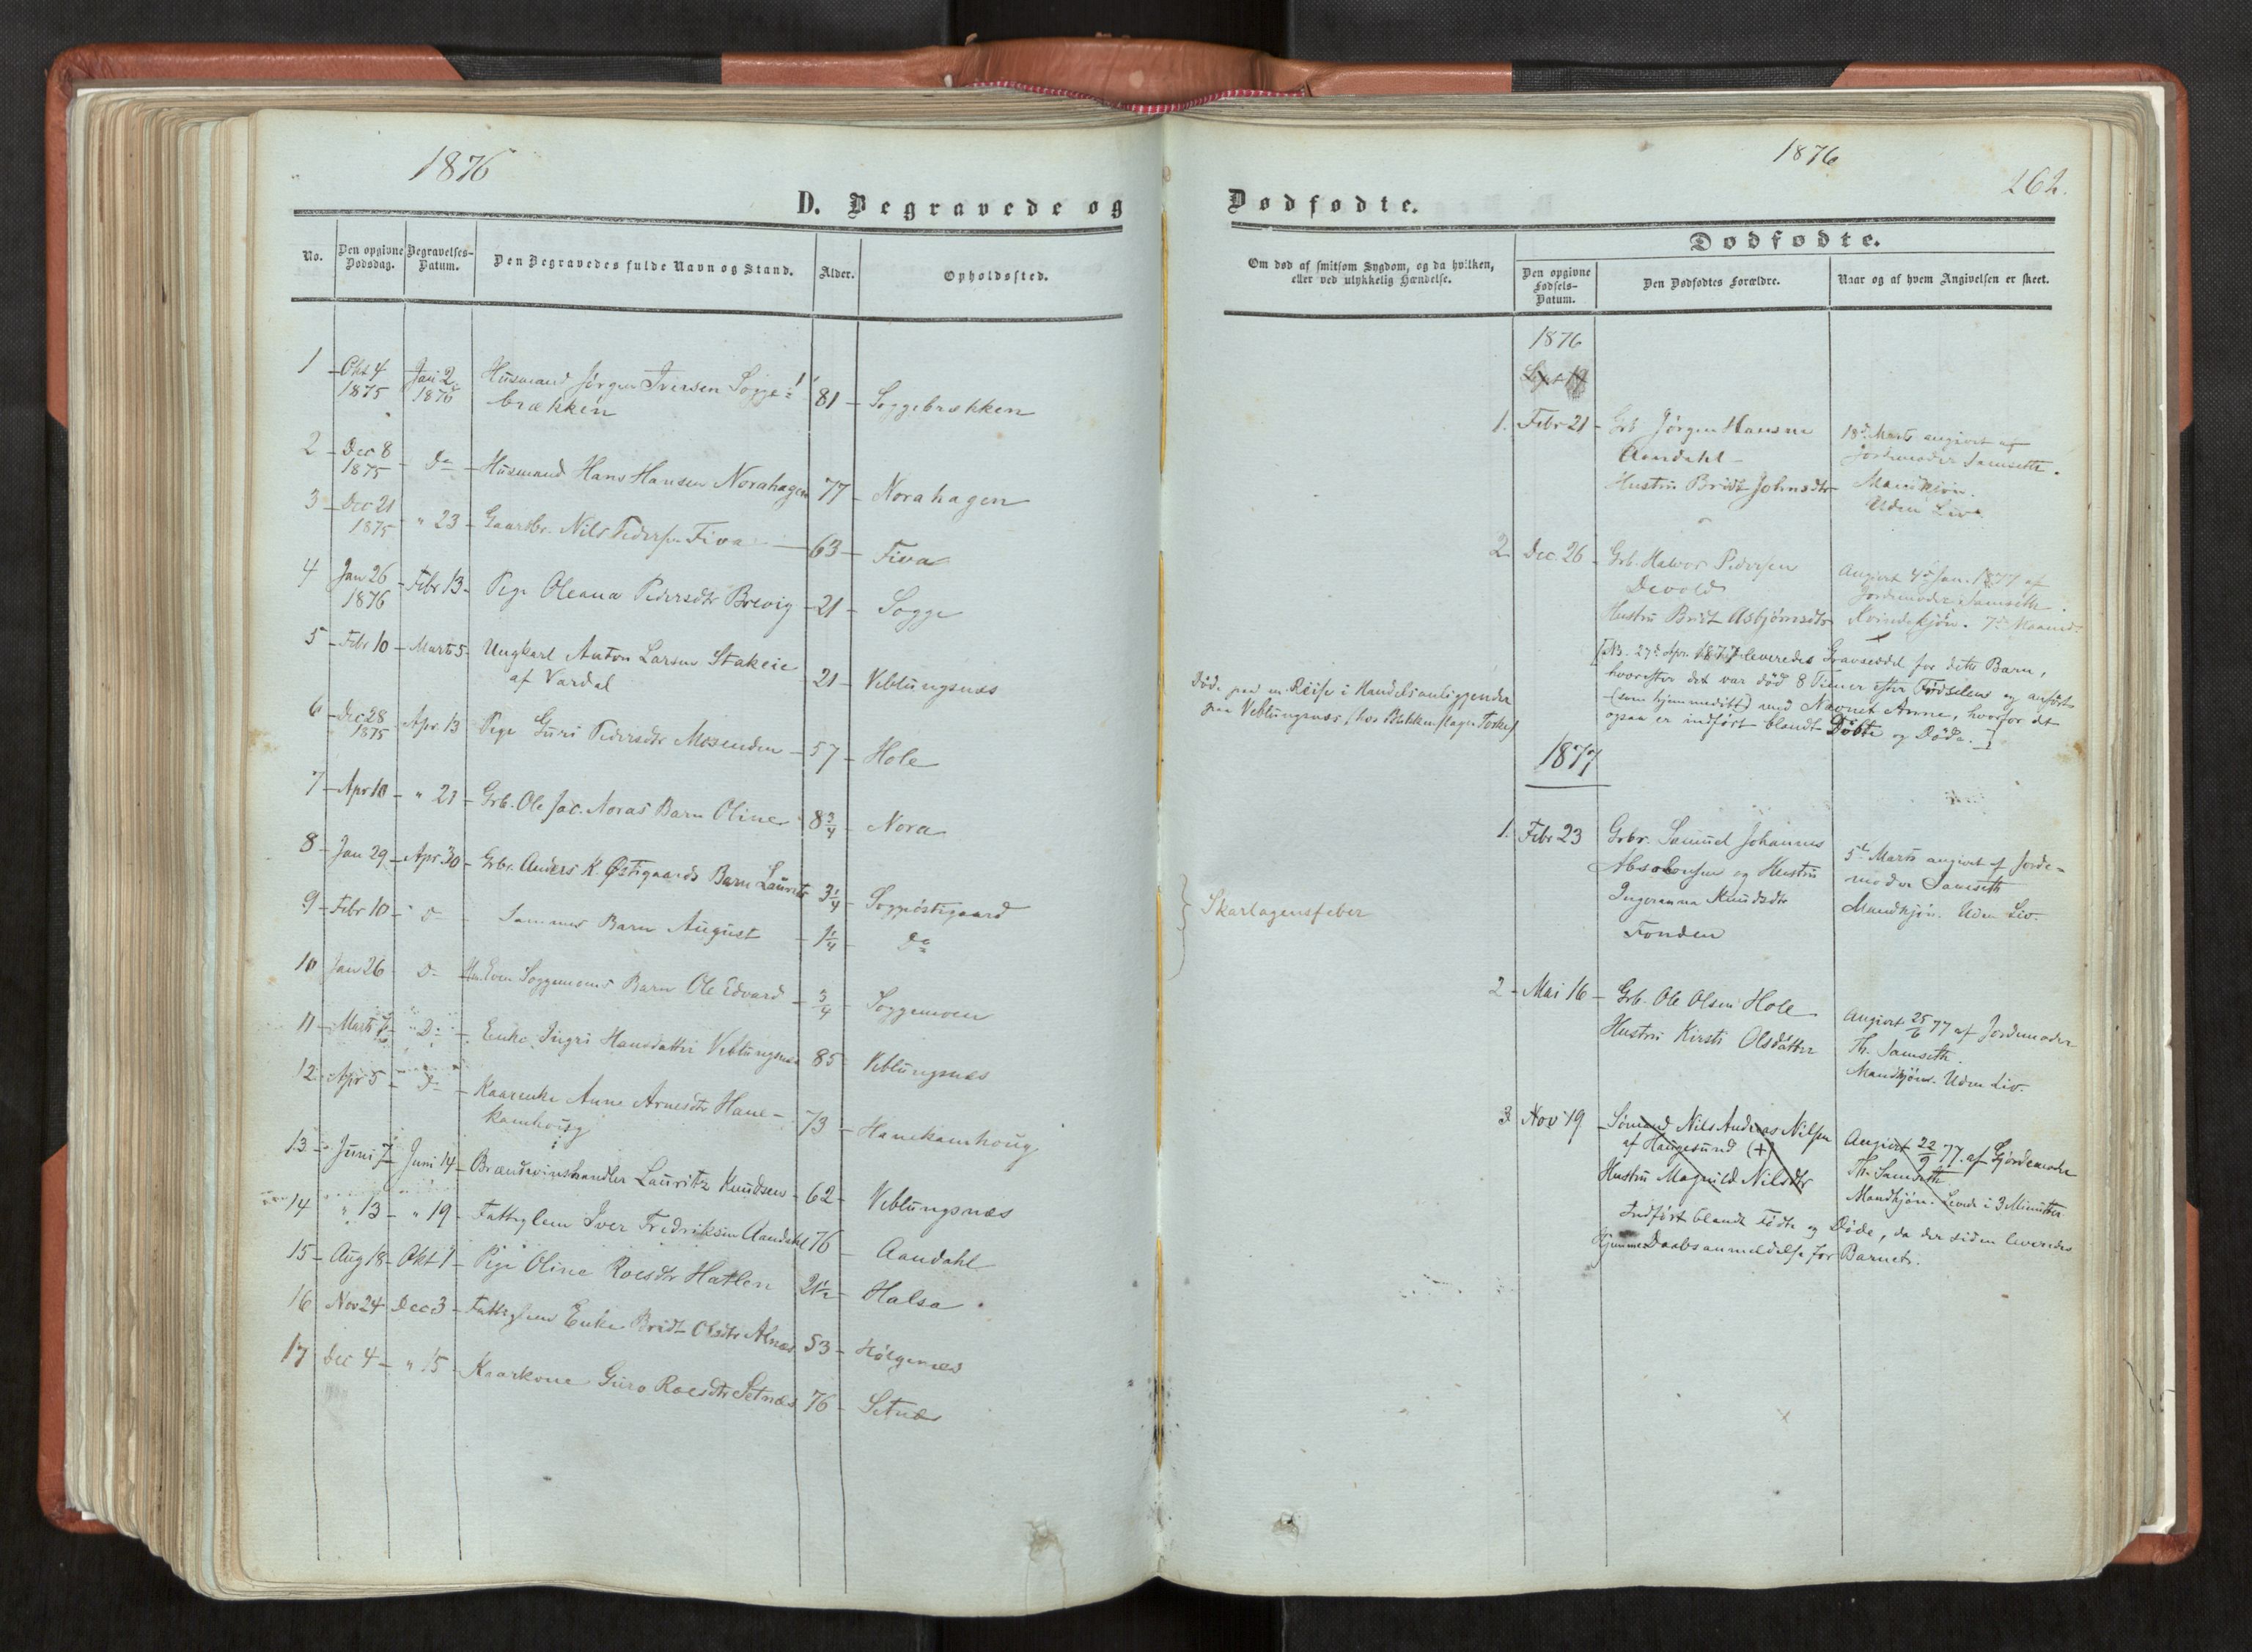 1876
D. Begravede og
No.
Den opgivne Dødsdag.
Begravelses-Datum.
Den Begravedes fulde Navn og Stand.
Alder.
Opholdssted.
1 - Okt 4 1875 - Jan 2 1876 - Husmand Jørgen Iversen Sogge=
brækken - 81 - Soggebrekken
2 - Dec 8 1875 - Do - Husmand Hans Hansen Norahagen 77 - Norahagen
3 - Dec 21 1875 - " 23 - Gaardbr. Nils Pedersen Fiva - 63 - Fiva
4 Jan 26 1876 - Febr 13 - Pige Oleana Pedersdtr Brevig - 21 - Sogge
5 - Febr 10 - Marts 5 - Ungkarl Anton Larsen Stakeie
af Vardal - 21 - Veblungsnæs
6 - Dec 28 1875 - Apr. 13 - Pige Guri Pedersdtr Mosenden - 57 - Hole
7 - Apr 10 - " 21 - Grb. Ole Jac. Noras Barn Oline - 8 3/4 - Nora
8 - Jan 29 - Apr. 30 - Grbr. Anders K. Østigaards Barn Laurits 3 1/4 - Soggeöstigaard
9 - Febr 10 - Do - Sammes Barn August - 1 1/4 - Do
10 Jan 26 - Do - Even Soggemoens Barn Ole Edvard - 3/4 - Soggemoen
11 - Marts - Do - Enke Ingri Hansdatter Veblungsnæs 85 - Veblungsnæs
12 - Apr 5 - Do - Kaarenke Anne Arnesdtr Hane-
kamhoug - 73 - Hanekamhoug
13 - Juni 7 - Juni 14 - Brændevinshandler Lauritz Knudsen - 62 - Veblungsnæs
14 " 13 - " 19 - Fattiglem Iver Fredriksen Aandahl 76 - Aandahl
15 - Aug 18 - Okt 1 - Pige Oline Roesdtr Hatlen 21 1/2 - Halsa
16 Nov 24 - Dec 3 - Fattiglem Enke Bridt Olsdtr Alnæs 53 - Hölgenæs
17 Dec 4 - " 15 - Kaarkone Guro Roesdtr Setnæs 76 - Setnæs
1876
262.
Dødfødte.
Om død af smitsom Sygdom, og da hvilken,
eller ved ulykkelig Hændelse.
Dødfødte.
Den opgivne Fødsels-Datum.
Den Dødfødtes Forældre.
Naar og af hvem Angivelsen er skeet.
1876
Sept 19
1. Febr 21 - Grb Jørgen Hansen
Aandahl -
Hustru Bridt Johnsdtr
18de Marts angivet af
Jordemoder Samseth.
Mandkjön.
Uden Liv.
2 Dec. 26 - Grb. Halvor Pedersen
Devold
Hustru Bridt Asbjörnsdtr
Angivet 4de Jan. 1877 af
Jordemoder Samseth.
Kvindekjön. 7de Maaned.
[NB. 27de Apr. 1877 leveredes Gravseddel for dette Barn,
hvorefter det var död 8 Timer efter Födselen og anfört
(som hjemmedöbt) med Navnet Anne, hvorfor det
ogsaa er indfört blandt Döbte og Döde.]
Död paa en Reise i Handelsanliggender
paa Veblungsnæs
Skarlagensfeber
1877
1. Febr 23 Grbr. Samuel Johannes
Absalonsen og Hustru
Ingeranna Knudsdtr
Fonden
5te Marts angivet af Jorde=
moder Samseth
Mandkjön. Uden Liv.
2 - Mai 16 - Grb. Ole Olsen Hole
Hustru Kirsti Olsdatter
Angivet 25/6 77 af Jordemoder
Th. Samseth.
Mandkjön. Uden Liv.
3 Nov 19 - Sömand Nils Andreas Nilsen
af Haugesund (+)
Hustru Magnild Nilsdtr
Angivet 22/9 77 af Gjordemoder
Th. Samseth
Mandkjön. Levede i 3 Minutter.
Indfört blandt Födte og Döde, da der siden leveredes
Hjemme Daabsanmeldelse for Barnet.